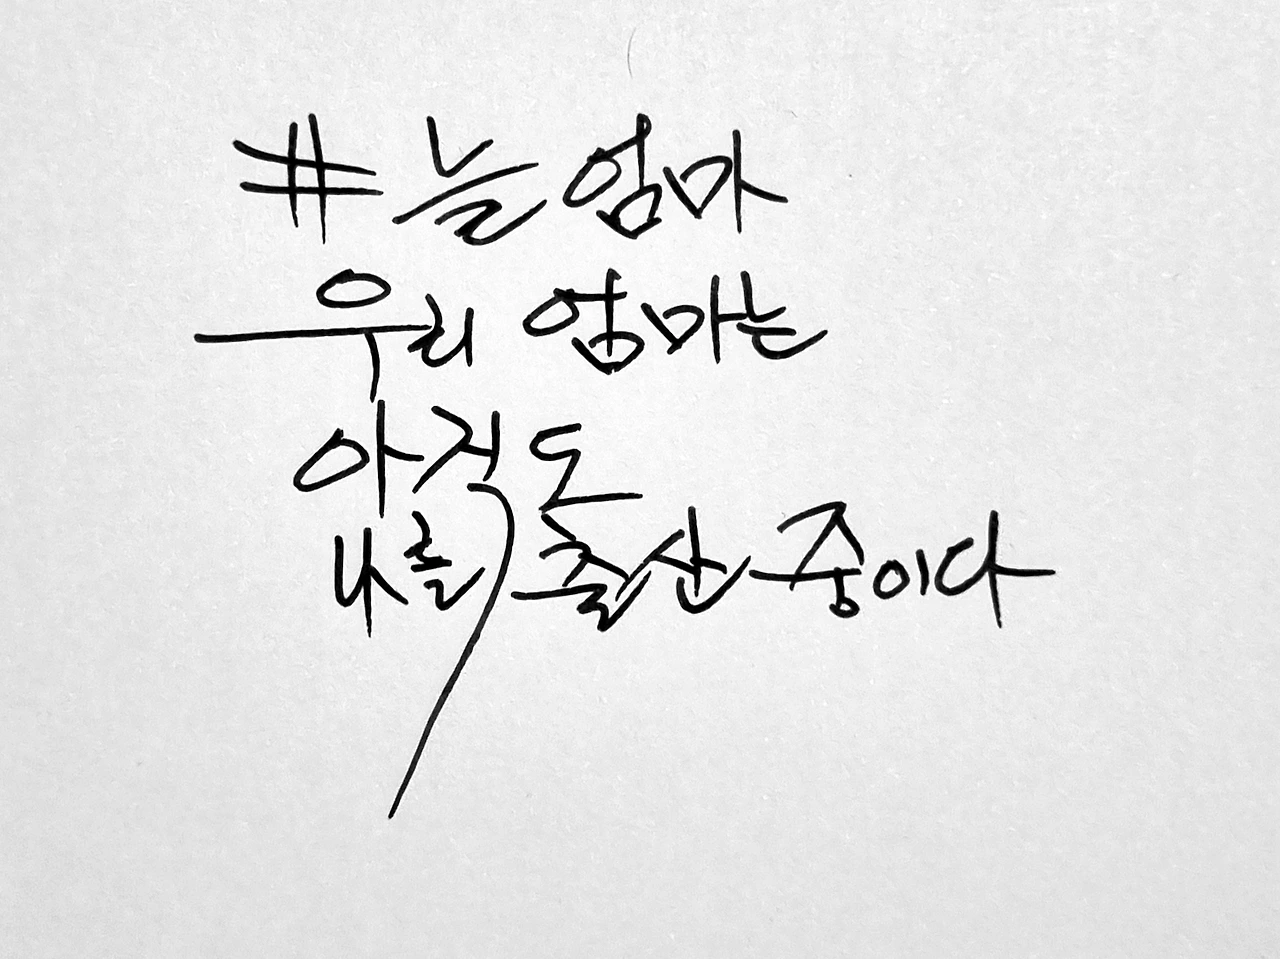 #늘엄마
우리 엄마는
아직도
나를 출산 중이다